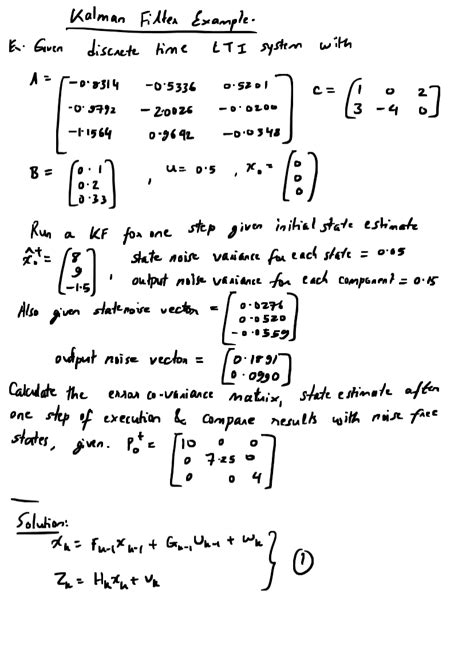 Kalman Filter Example.
Ex. Given discrete time LTI system with
A = [-0.8314 -0.5336 0.5201
-0.3792 -2.0026 -0.0200
-1.1564 0.9692 -0.0348]
C = [1 0 2
3 -4 0]
B = [0.1
0.2
0.33]
, u = 0.5 , x₀ = [0
0
0]
Run a KF for one step given initial state estimate
x̂₀⁺ = [8
9
-1.5]
, state noise variance for each state = 0.05
output noise variance for each component = 0.15
Also given state noise vector = [0.0276
0.0520
-0.0559]
output noise vector = [0.1891
0.0990]
Calculate the error co-variance matrix, state estimate after
one step of execution & compare results with noise free
states, given. P₀⁺ = [10 0 0
0 7.25 0
0 0 4]
Solution:
xₖ = Fₖ₋₁xₖ₋₁ + Gₖ₋₁Uₖ₋₁ + wₖ
Zₖ = Hₖxₖ + vₖ
} ①